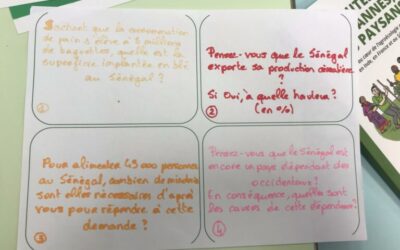 Sachant que la consommation
de pain s'élève à 8 millions
de baguettes, quelle est la
superficie implantée en blé
au Sénégal ?
1
Pensez-vous que le Sénégal
exporte sa production céréalière
?
Si Oui, à quelle hauteur ?
(en %)
2
Pour alimenter 45 000 personnes
au Sénégal, combien de
sont elles nécessaires d'après
vous pour répondre à cette
demande ?
3
Pensez-vous que le Sénégal est
encore un pays dépendant des
occidentaux ?
En conséquence, quelles sont
les causes de cette dépendance ?
4
PAYSAN